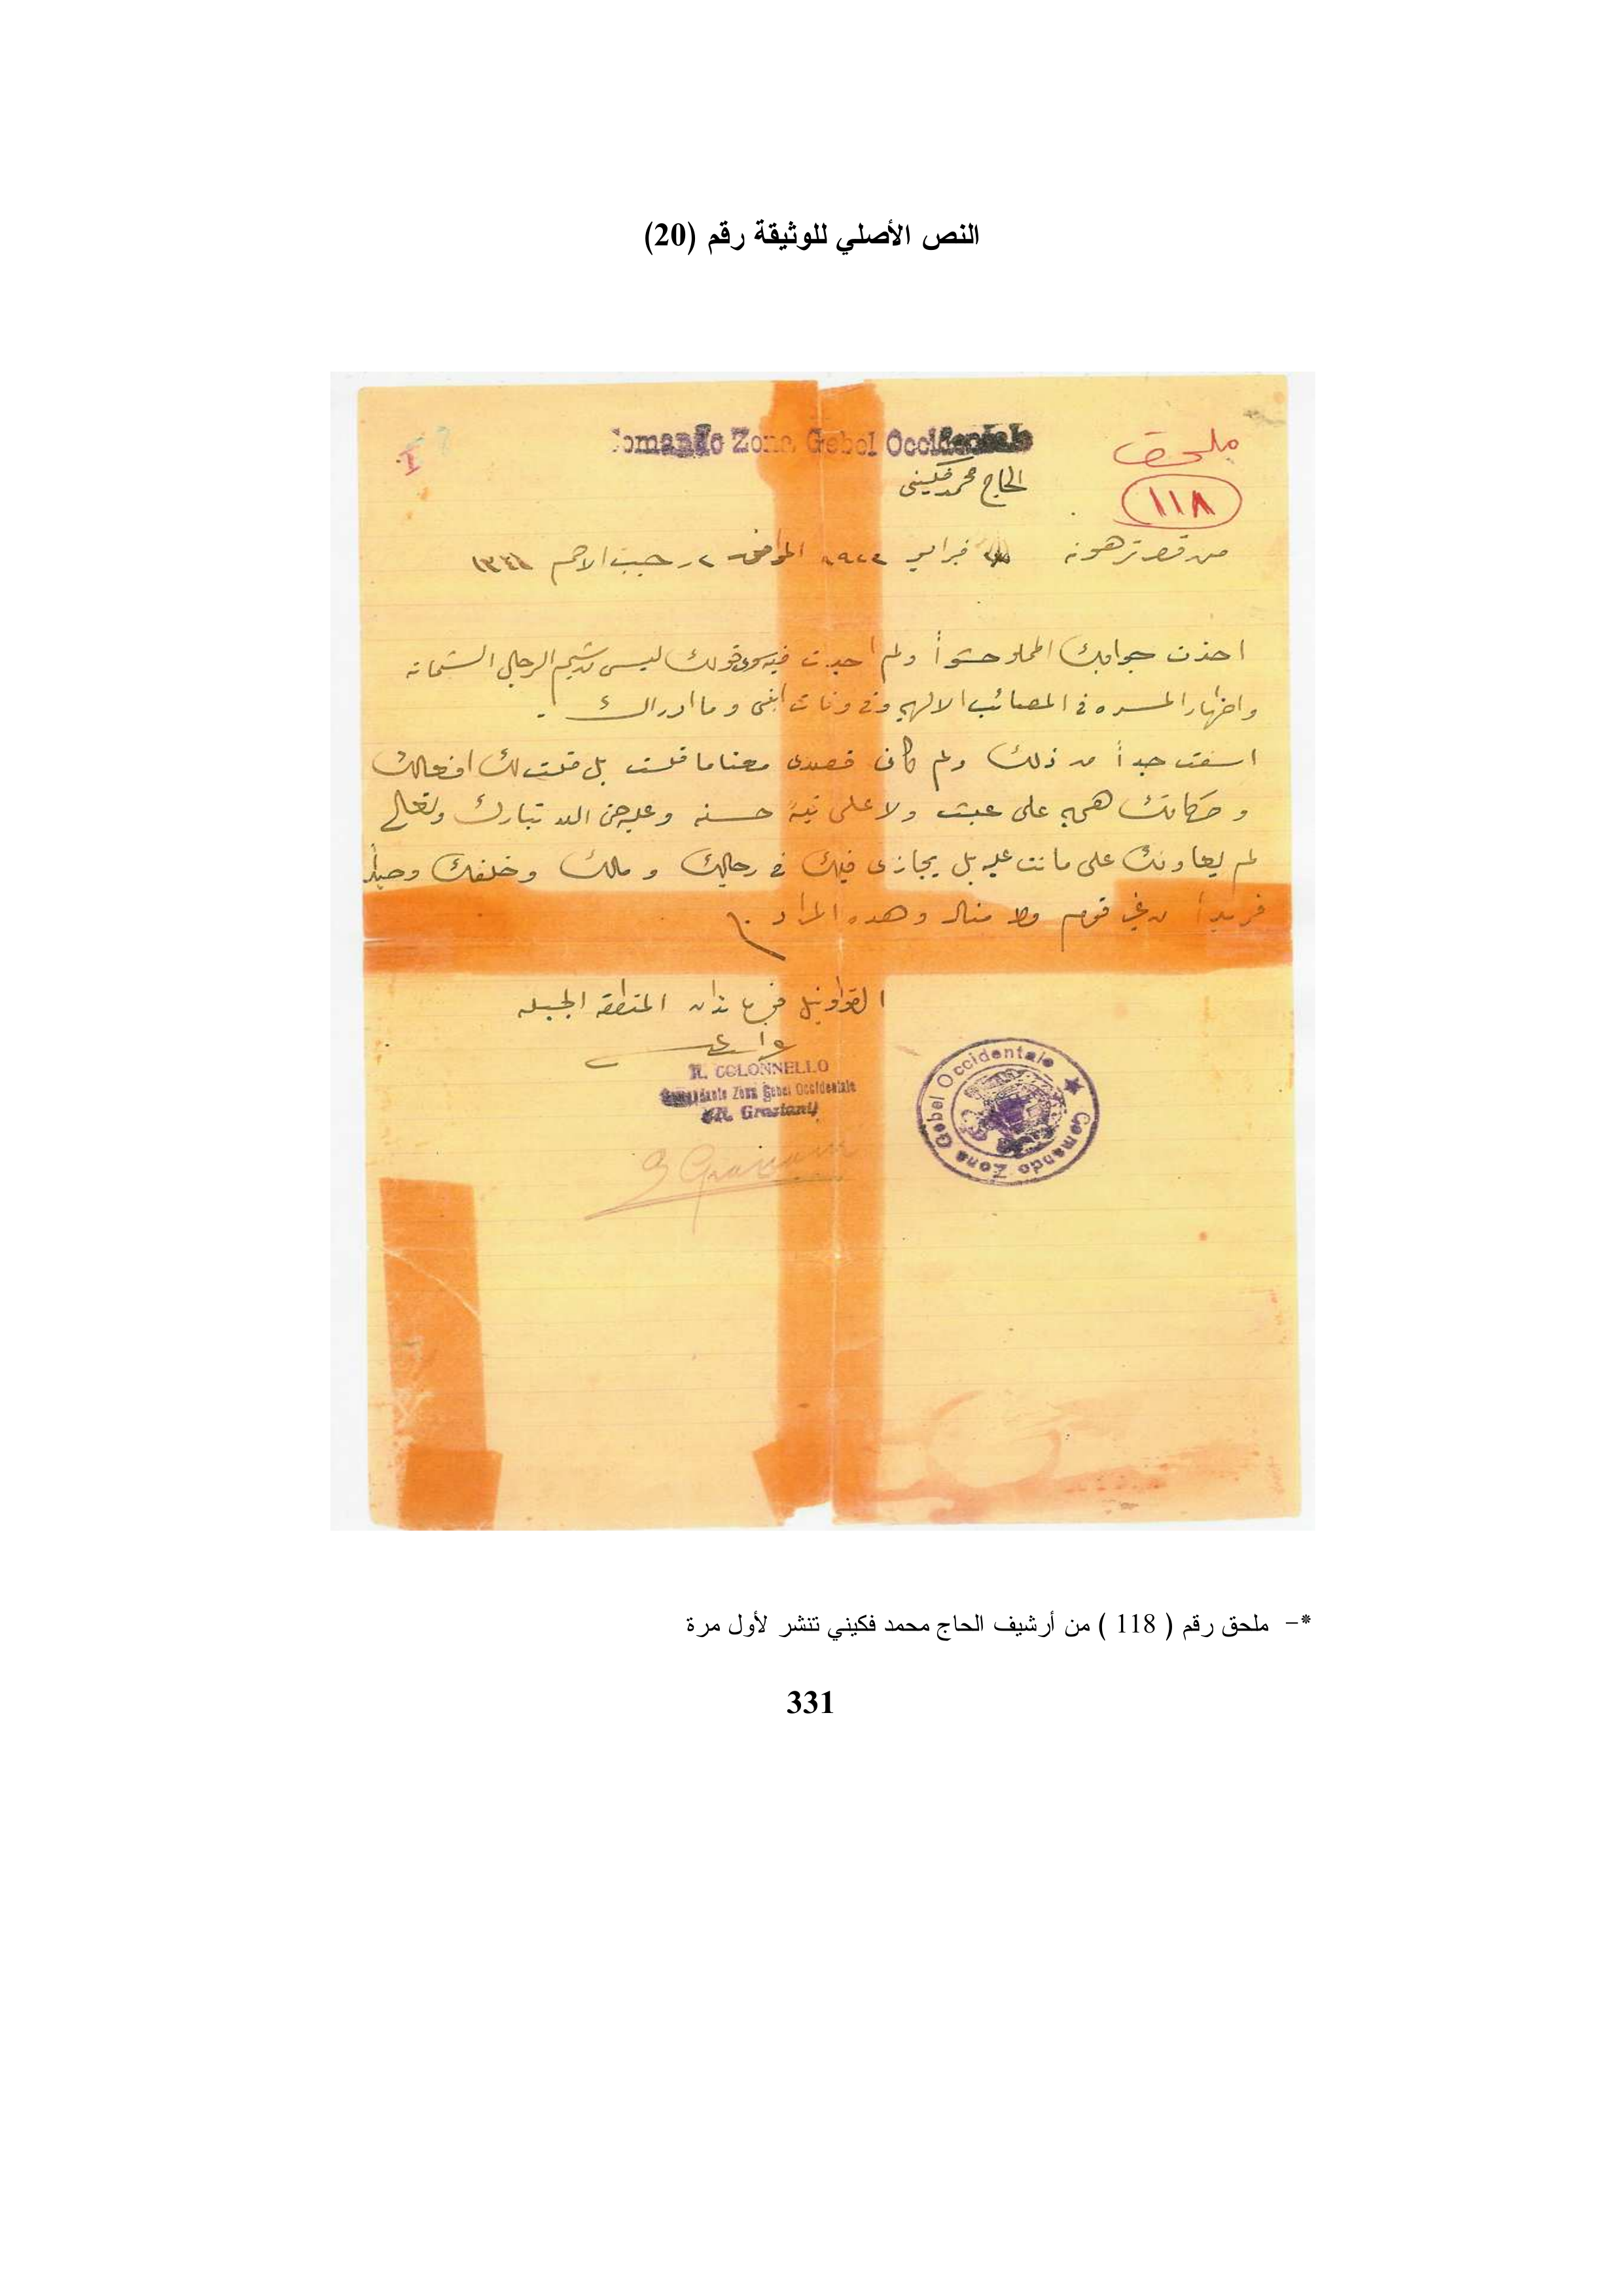 النص الأصلي للوثيقة رقم (20)
Comando Zona Gebel Occidentale
ملحق
١١٨
الحاج محمد فكيني
من قصر ترهونه فبراير الموافق ٢ رجب الاصم ١٣٤١
اخذت جوابك المملو حشواً ولم اجدت فيه سوى قولك ليس من شيم الرجال الشماته
واظهار المسره في المصائب الالهيه وفي وفات ابني وما ادراك .
اسفت جداً من ذلك ولم كان قصدى معنا ما قلت بل قلت لك افعالك
وحكاتك همه على عبث ولا على نية حسنه وعليه الله تبارك وتعالى
لم يعاونك على مانت عليه بل يجازى فيك في رجالك و مالك وخلفك وحيداً
فريداً من غير قوم ولا منال وهده المراد
القواونيل المنطقه الجبليه
IL COLONNELLO
Comandante Zona Gebel Occidentale
(R. Graziani)
R Graziani
Comando Zona Gebel Occidentale
*- ملحق رقم ( 118 ) من أرشيف الحاج محمد فكيني تنشر لأول مرة
331